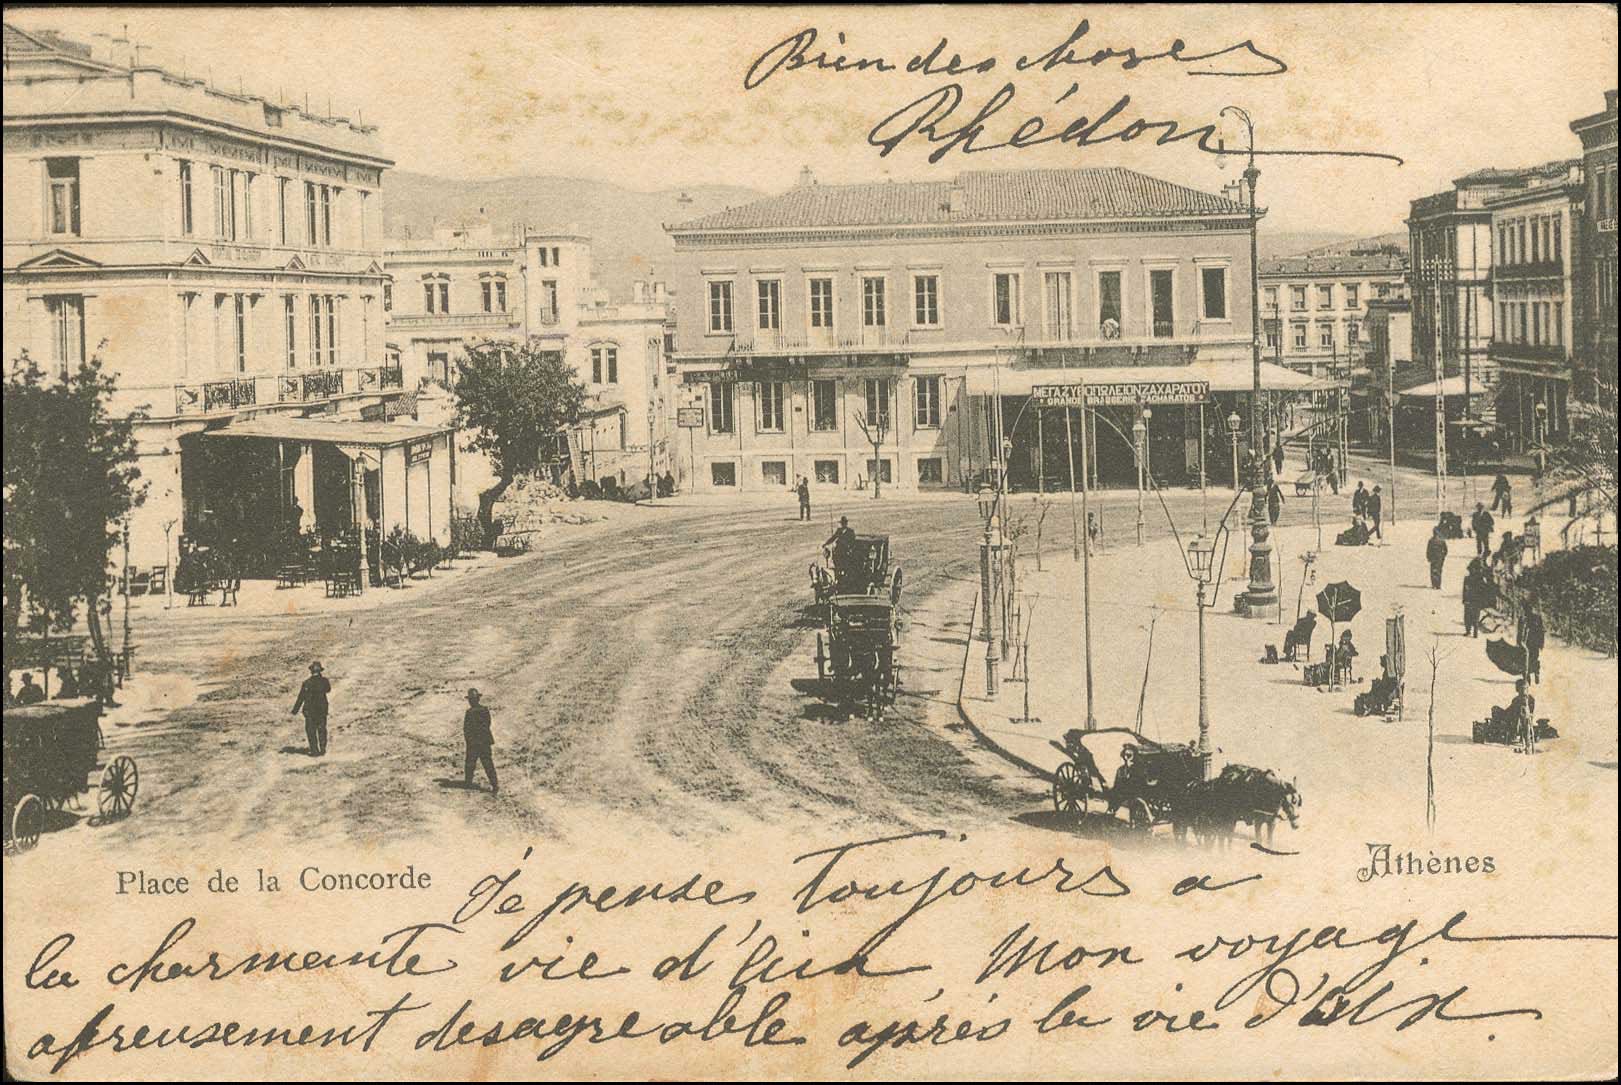 Bien des choses
Rhédon
ΜΕΓΑ ΖΥΘΟΠΩΛΕΙΟΝ ΖΑΧΑΡΑΤΟΥ
GRANDE BRASSERIE ZACHARATOS
Place de la Concorde
Athènes
Je pense toujours à
la charmante vie d'
Mon voyage
afreusement desagreable après la vie d'